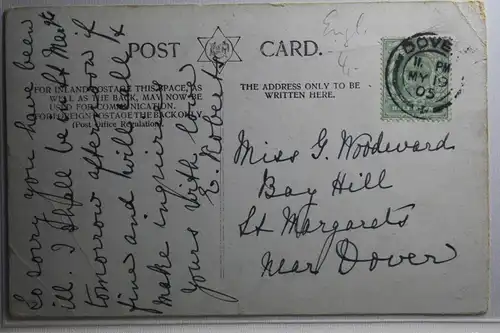 POST CARD.
FOR INLAND POSTAGE THIS SPACE, AS
WELL AS THE BACK, MAY NOW BE
USED FOR COMMUNICATION.
FOR FOREIGN POSTAGE THE BACK ONLY
(Post Office Regulation).
THE ADDRESS ONLY TO BE
WRITTEN HERE.
Engl.
DOVE
11 PM
MY 19
05
So sorry you have been
ill. I shall be out
tomorrow afternoon if
fine and will call &
make inquiries
yours with love
E. Roberts
Miss G. Woodward
Bay Hill
St Margarets
Near Dover